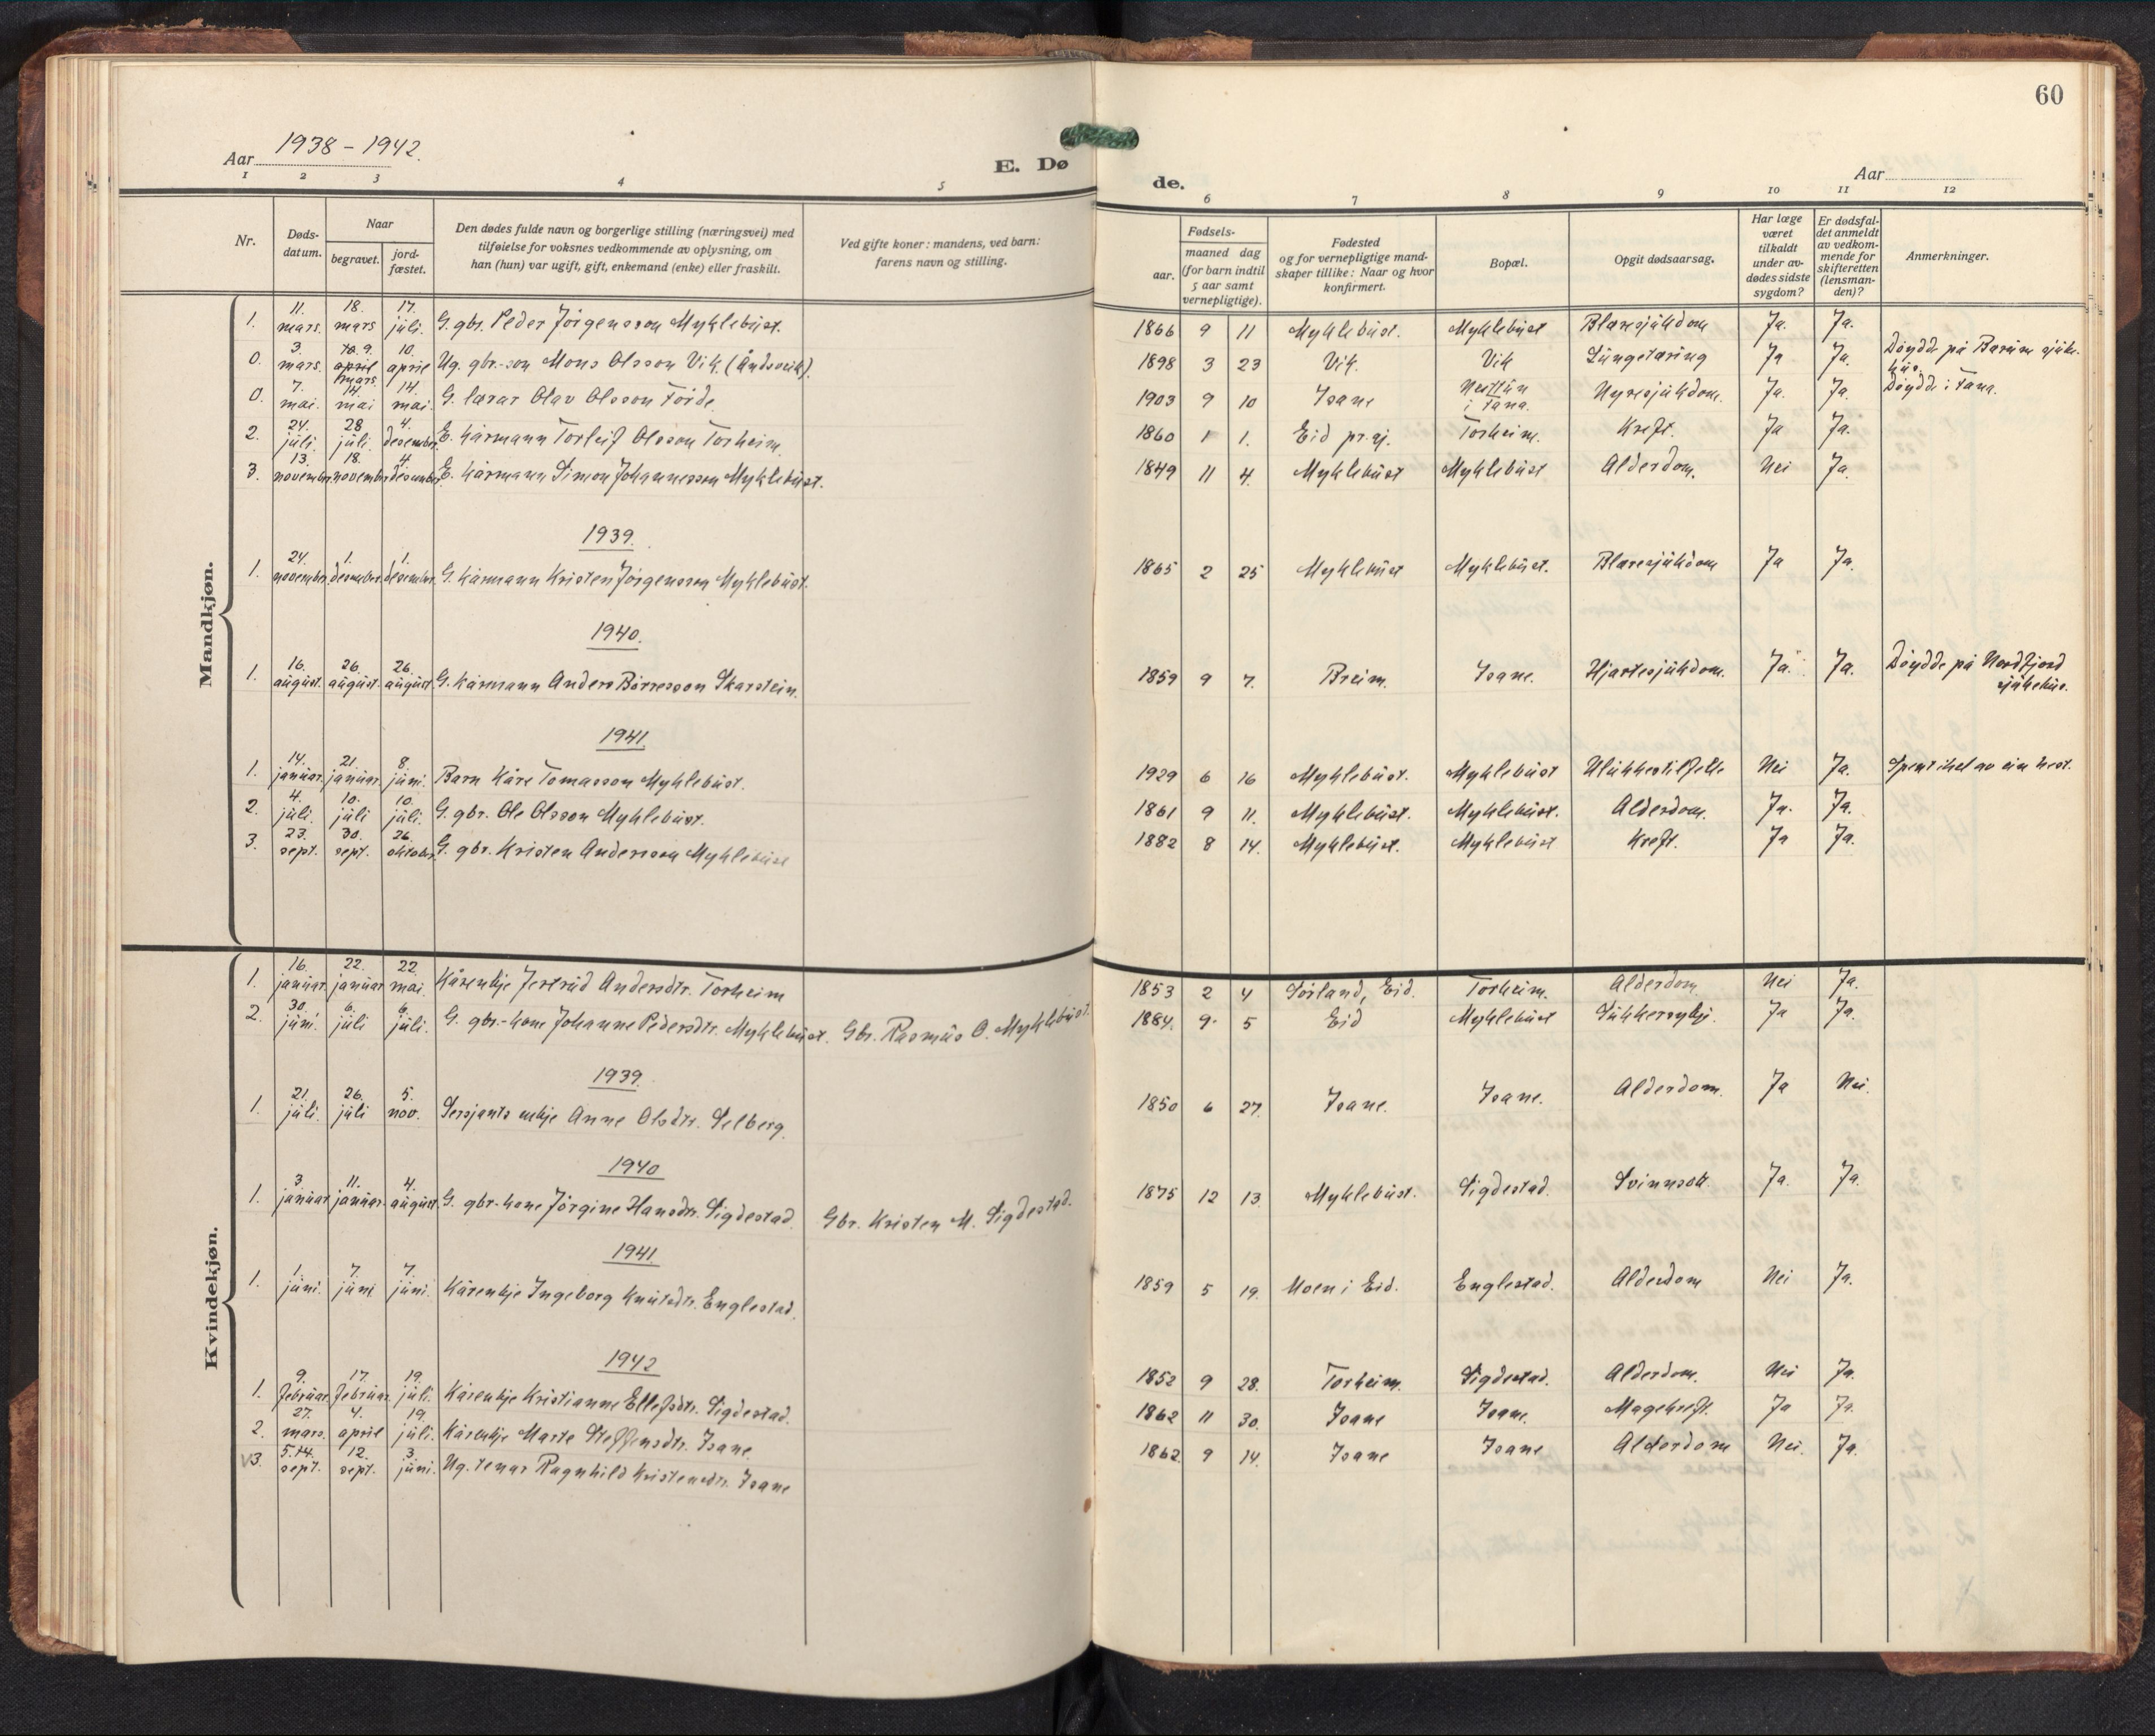 60
Aar 1938 – 1942.
E. Dø
de.
Aar
1 2 3 4 5
6 7 8 9 10 11 12
Nr.
Døds-
datum.
Naar
begravet.
jord-
fæstet.
Den dødes fulde navn og borgerlige stilling (næringsvei) med
tilføielse for voksnes vedkommende av oplysning, om
han (hun) var ugift, gift, enkemand (enke) eller fraskilt.
Ved gifte koner: mandens, ved barn:
farens navn og stilling.
Fødsels-
aar.
maaned dag
(for barn indtil
5 aar samt
vernepligtige).
Fødested
og for vernepligtige mand-
skaper tillike: Naar og hvor
konfirmert.
Bopæl.
Opgit dødsaarsag.
Har læge
været
tilkaldt
under av-
dødes sidste
sygdom?
Er dødsfal-
det anmeldt
av vedkom-
mende for
skifteretten
(lensman-
den)?
Anmerkninger.
Mandkjøn.
1. 11. mars. 18. mars 17. juli. G. gbr. Peder Jörgensson Myklebust. 1866 9 11 Myklebust. Myklebust Blæresjukdom Ja. Ja.
0. 3. mars. 9. mars. 10. april Ug. gbr.-son Mons Olsson Vik. (Åndsvik). 1898 3 23 Vik. Vik Lungetæring Ja Ja. Döydde på Bærum sjuke-
hus.
0. 7. mai. 14. mai 14. mai. G. lærar Olav Olsson Förde. 1903 9 10 Isane Nesttun
i Fana. Nyresjukdom. Ja. Ja. Döydde i Fana.
2. 24. juli. 28 juli. 4. desember. E. kårmann Torleif Olsson Torheim. 1860 1 1. Eid pr.gj. Torheim. Kreft. Ja Ja.
3. 13. november. 18. november 4. desember. E. kårmann Simon Johannesson Myklebust. 1849 11 4. Myklebust Myklebust Alderdom. Nei Ja.
1939.
1. 24. november. 1. desember. 1. desember. G. kårmann Kristen Jörgensson Myklebust. 1865 2 25 Myklebust Myklebust. Blæresjukdom Ja Ja.
1940.
1. 16. august. 26. august. 26. august. G. kårmann Anders Börresson Skarstein. 1859 9 7. Breim. Isane. Hjartesjukdom. Ja. Ja. Döydde på Nordfjord
sjukehus.
1941.
1. 14. januar. 21. januar. 8. juni. Barn Kåre Tomasson Myklebust. 1929 6 16 Myklebust. Myklebust Ulukkestilfelle Nei Ja. Spent ihel av ein hest.
2. 4. juli. 10. juli 10. juli. G. gbr. Ole Olsson Myklebust. 1861 9 11. Myklebust. Myklebust. Alderdom. Ja. Ja.
3. 23. sept. 30. sept. 26. oktober. G. gbr. Kristen Andersson Myklebust 1882 8 14. Myklebust. Myklebust Kreft. Ja Ja.
Kvindekjøn.
1. 16. januar. 22. januar 22. mai. Kårenkje Jertrud Andersdtr. Torheim 1853 2 4 Sörland, Eid. Torheim. Alderdom Nei Ja.
2. 30. juni. 6. juli 6. juli. G. gbr.-kone Johanne Pedersdtr. Myklebust. Gbr. Rasmus O. Myklebust. 1884. 9. 5 Eid Myklebust Sukkersykj. Ja Ja.
1939.
1. 21. juli. 26. juli 5. nov. Sersjants enkje Anne Olsdtr. Selberg. 1850 6 27. Isane. Isane. Alderdom. Ja Nei.
1940
1. 3. januar. 11. januar. 4. august. G. gbr.-kone Jörgine Hansdtr. Sigdestad. Gbr. Kristen M. Sigdestad. 1875 12 13. Myklebust. Sigdestad. Svinnsott. Ja. Ja.
1941.
1. 1. juni. 7. juni 7. juni. Kårenkje Ingeborg Knutsdtr. Englestad. 1859 5 19. Moen i Eid. Englestad. Alderdom Nei Ja.
1942
1. 9. februar. 17. februar. 19. juli. Kårenkje Kristianne Ellefsdtr. Sigdestad. 1852 9 28. Torheim. Sigdestad. Alderdom. Nei Ja.
2. 27. mars. 4. april 19. juli. Kårenkje Marta Steffensdtr. Isane 1862 11 30. Isane Isane. Magekreft. Ja Ja.
3. 5. sept. 12. sept. 3. juni. Ug. tenar Ragnhild Kristensdtr. Isane 1862 9 14. Isane Isane Alderdom Nei. Ja.